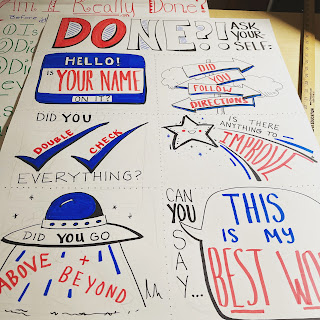 Am I Really Done?
Before
DONE?!
ASK
YOUR-
SELF:
HELLO!
IS YOUR NAME
ON IT?
DID
YOU
FOLLOW
DIRECTIONS
DID YOU
DOUBLE CHECK
EVERYTHING?
IS THERE
ANYTHING TO
IMPROVE
DID YOU GO
ABOVE + BEYOND
CAN
YOU
SAY...
THIS
IS MY
BEST WO